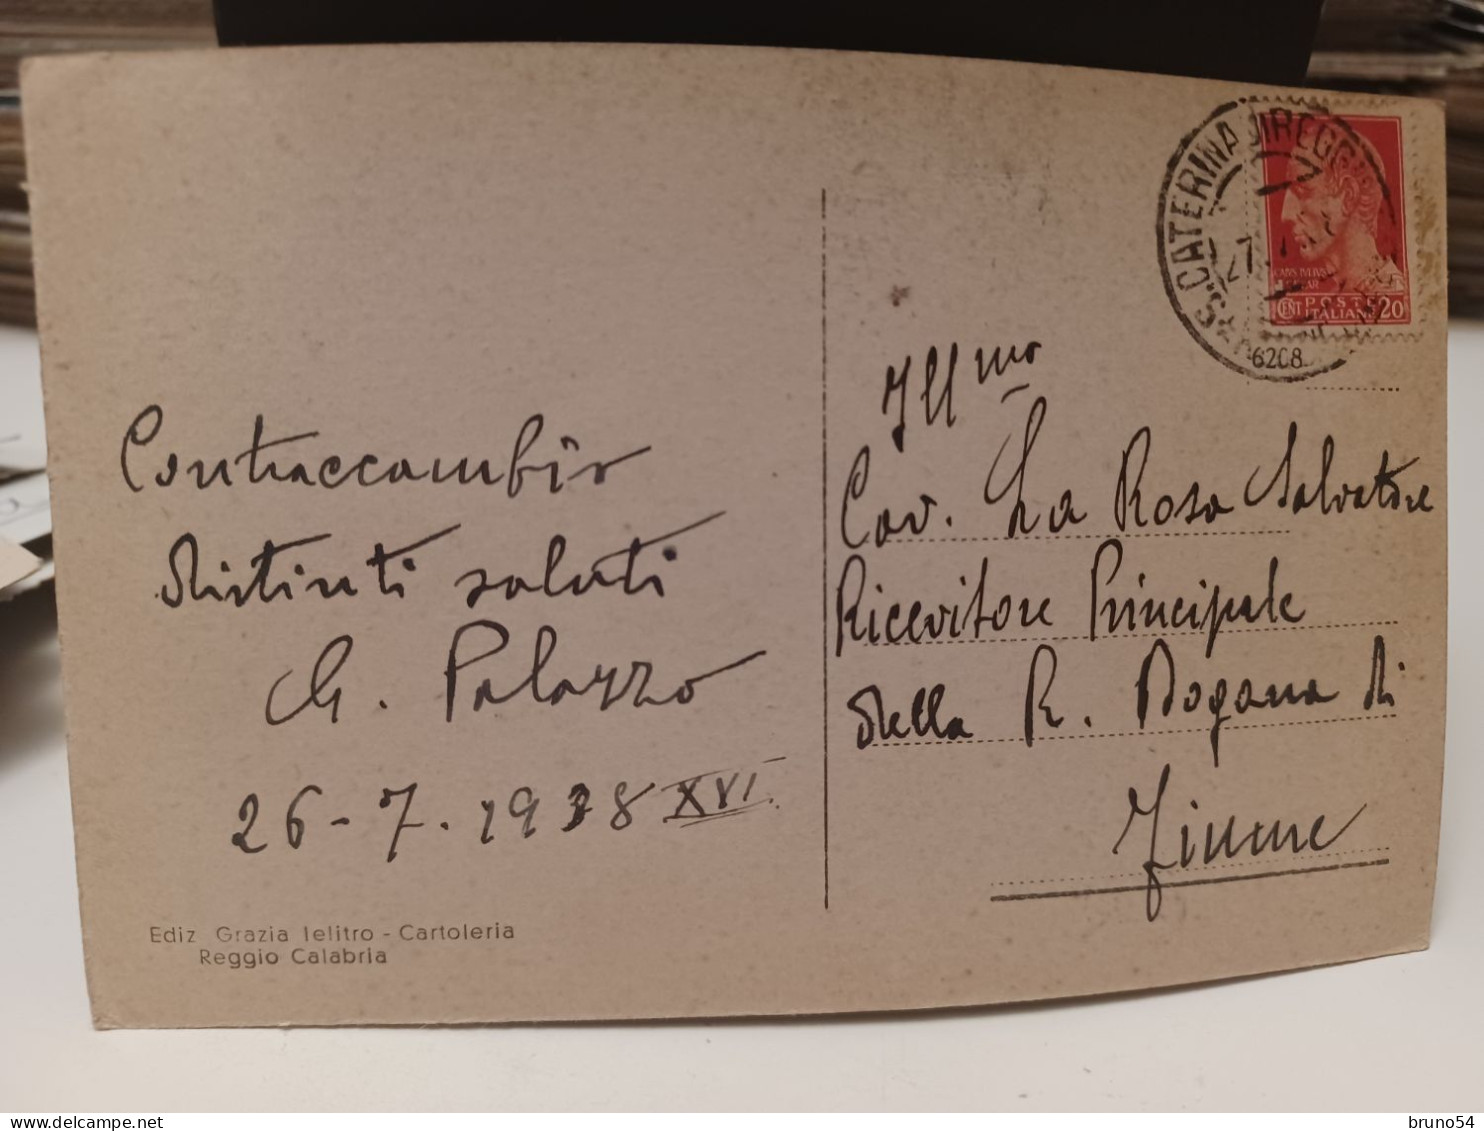 Contraccambio
distinti saluti
G. Palazzo
26-7.1938 XVI.
Ediz Grazia Ielitro - Cartoleria
Reggio Calabria
S. CATERINA DI REGGIO
6208
POSTE
CENT ITALIANE 20
Ill mo
Cav. La Rosa Salvatore
Ricevitore Principale
della R. Dogana di
Fiume
bruno54